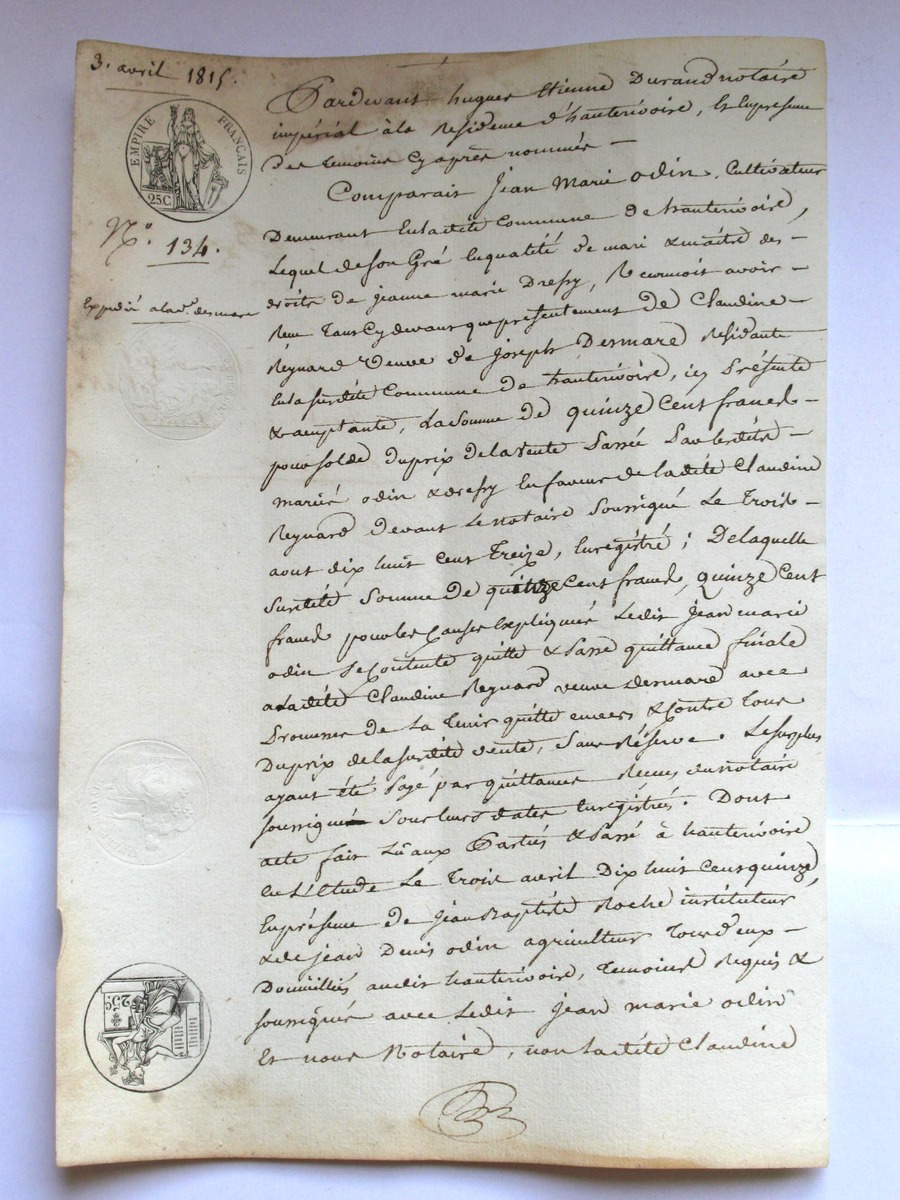 3. avril 1815.
EMPIRE FRANÇAIS
25C
N.o
134.
Expedié a la d.e desmare
25C
Pardevant hugues Etienne Durand notaire
impérial à la Residence d'hauterivoire, Et En présence
des temoins Cy après nommés —
Comparait Jean Marie odin, Cultivateur
Demeurant En ladite Commune de hauterivoire,
Lequel de son Gré En qualité de mari & maitre des —
droits de jeanne marie Dressy, Reconnoit avoir —
Reçu Tant Cy devant que présentement de Claudine —
Reynard Veuve de joseph Desmare Residante
En la susdite Commune de hauterivoire, icy Présente
& acceptante, La Somme de quinze Cent francs —
pour solde du prix de la vente Passée Par lesdits —
mariés odin & dressy En faveur de ladite Claudine
Reynard devant Le notaire Soussigné Le Trois —
aout dix huit Cent Treize, Enregistré ; De laquelle
Susdite Somme de quinze Cent francs, quinze Cent
francs pour les Causes Expliquées Ledit Jean marie
odin Se Contente quitte & Passe quittance finale
a Ladite Claudine Reynard veuve desmare avec
Promesse de La Tenir quitte envers & Contre Tous
Du prix de la susdite vente, Sans Réserve. Le surplus
ayant été Payé par quittances Reçues du notaire
soussigné Sous leurs dates Enregistrés. Dont
acte fait Lu aux Parties & Passé à hauterivoire
En L'étude Le Trois avril Dix huit Cent quinze,
En présence de Jean Baptiste Roche instituteur
& de jean Denis odin agriculteur Tous deux —
Domiciliés audit hauterivoire, Temoins Requis &
soussignés avec Ledit Jean marie odin
Et nous Notaire, non Ladite Claudine